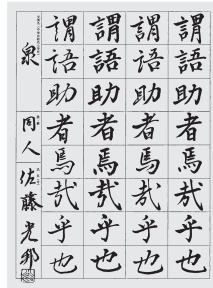 謂語助者焉哉乎也
謂語助者焉哉乎也
謂語助者焉哉乎也
謂語助者焉哉乎也
泉 同人 佐藤光邦